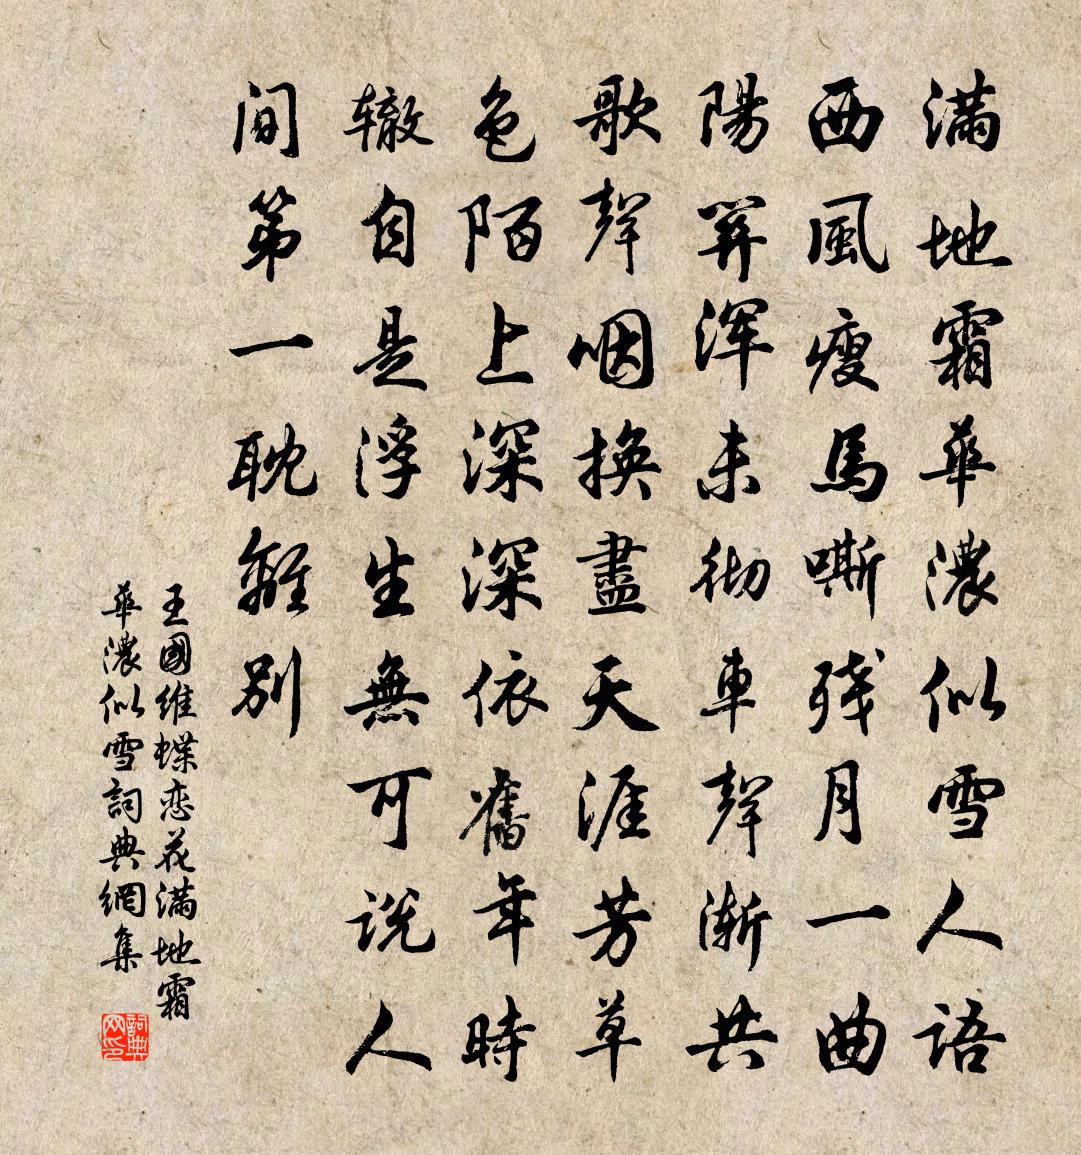 满地霜華濃似雪人語
西風瘦馬嘶残月一曲
陽関浑未彻車聲漸共
歌聲咽換盡天涯芳草
色陌上深深依舊年時
辙自是浮生無可说人
间第一耽離别
王國维蝶恋花满地霜
華濃似雪詞典網集
詞典
网印